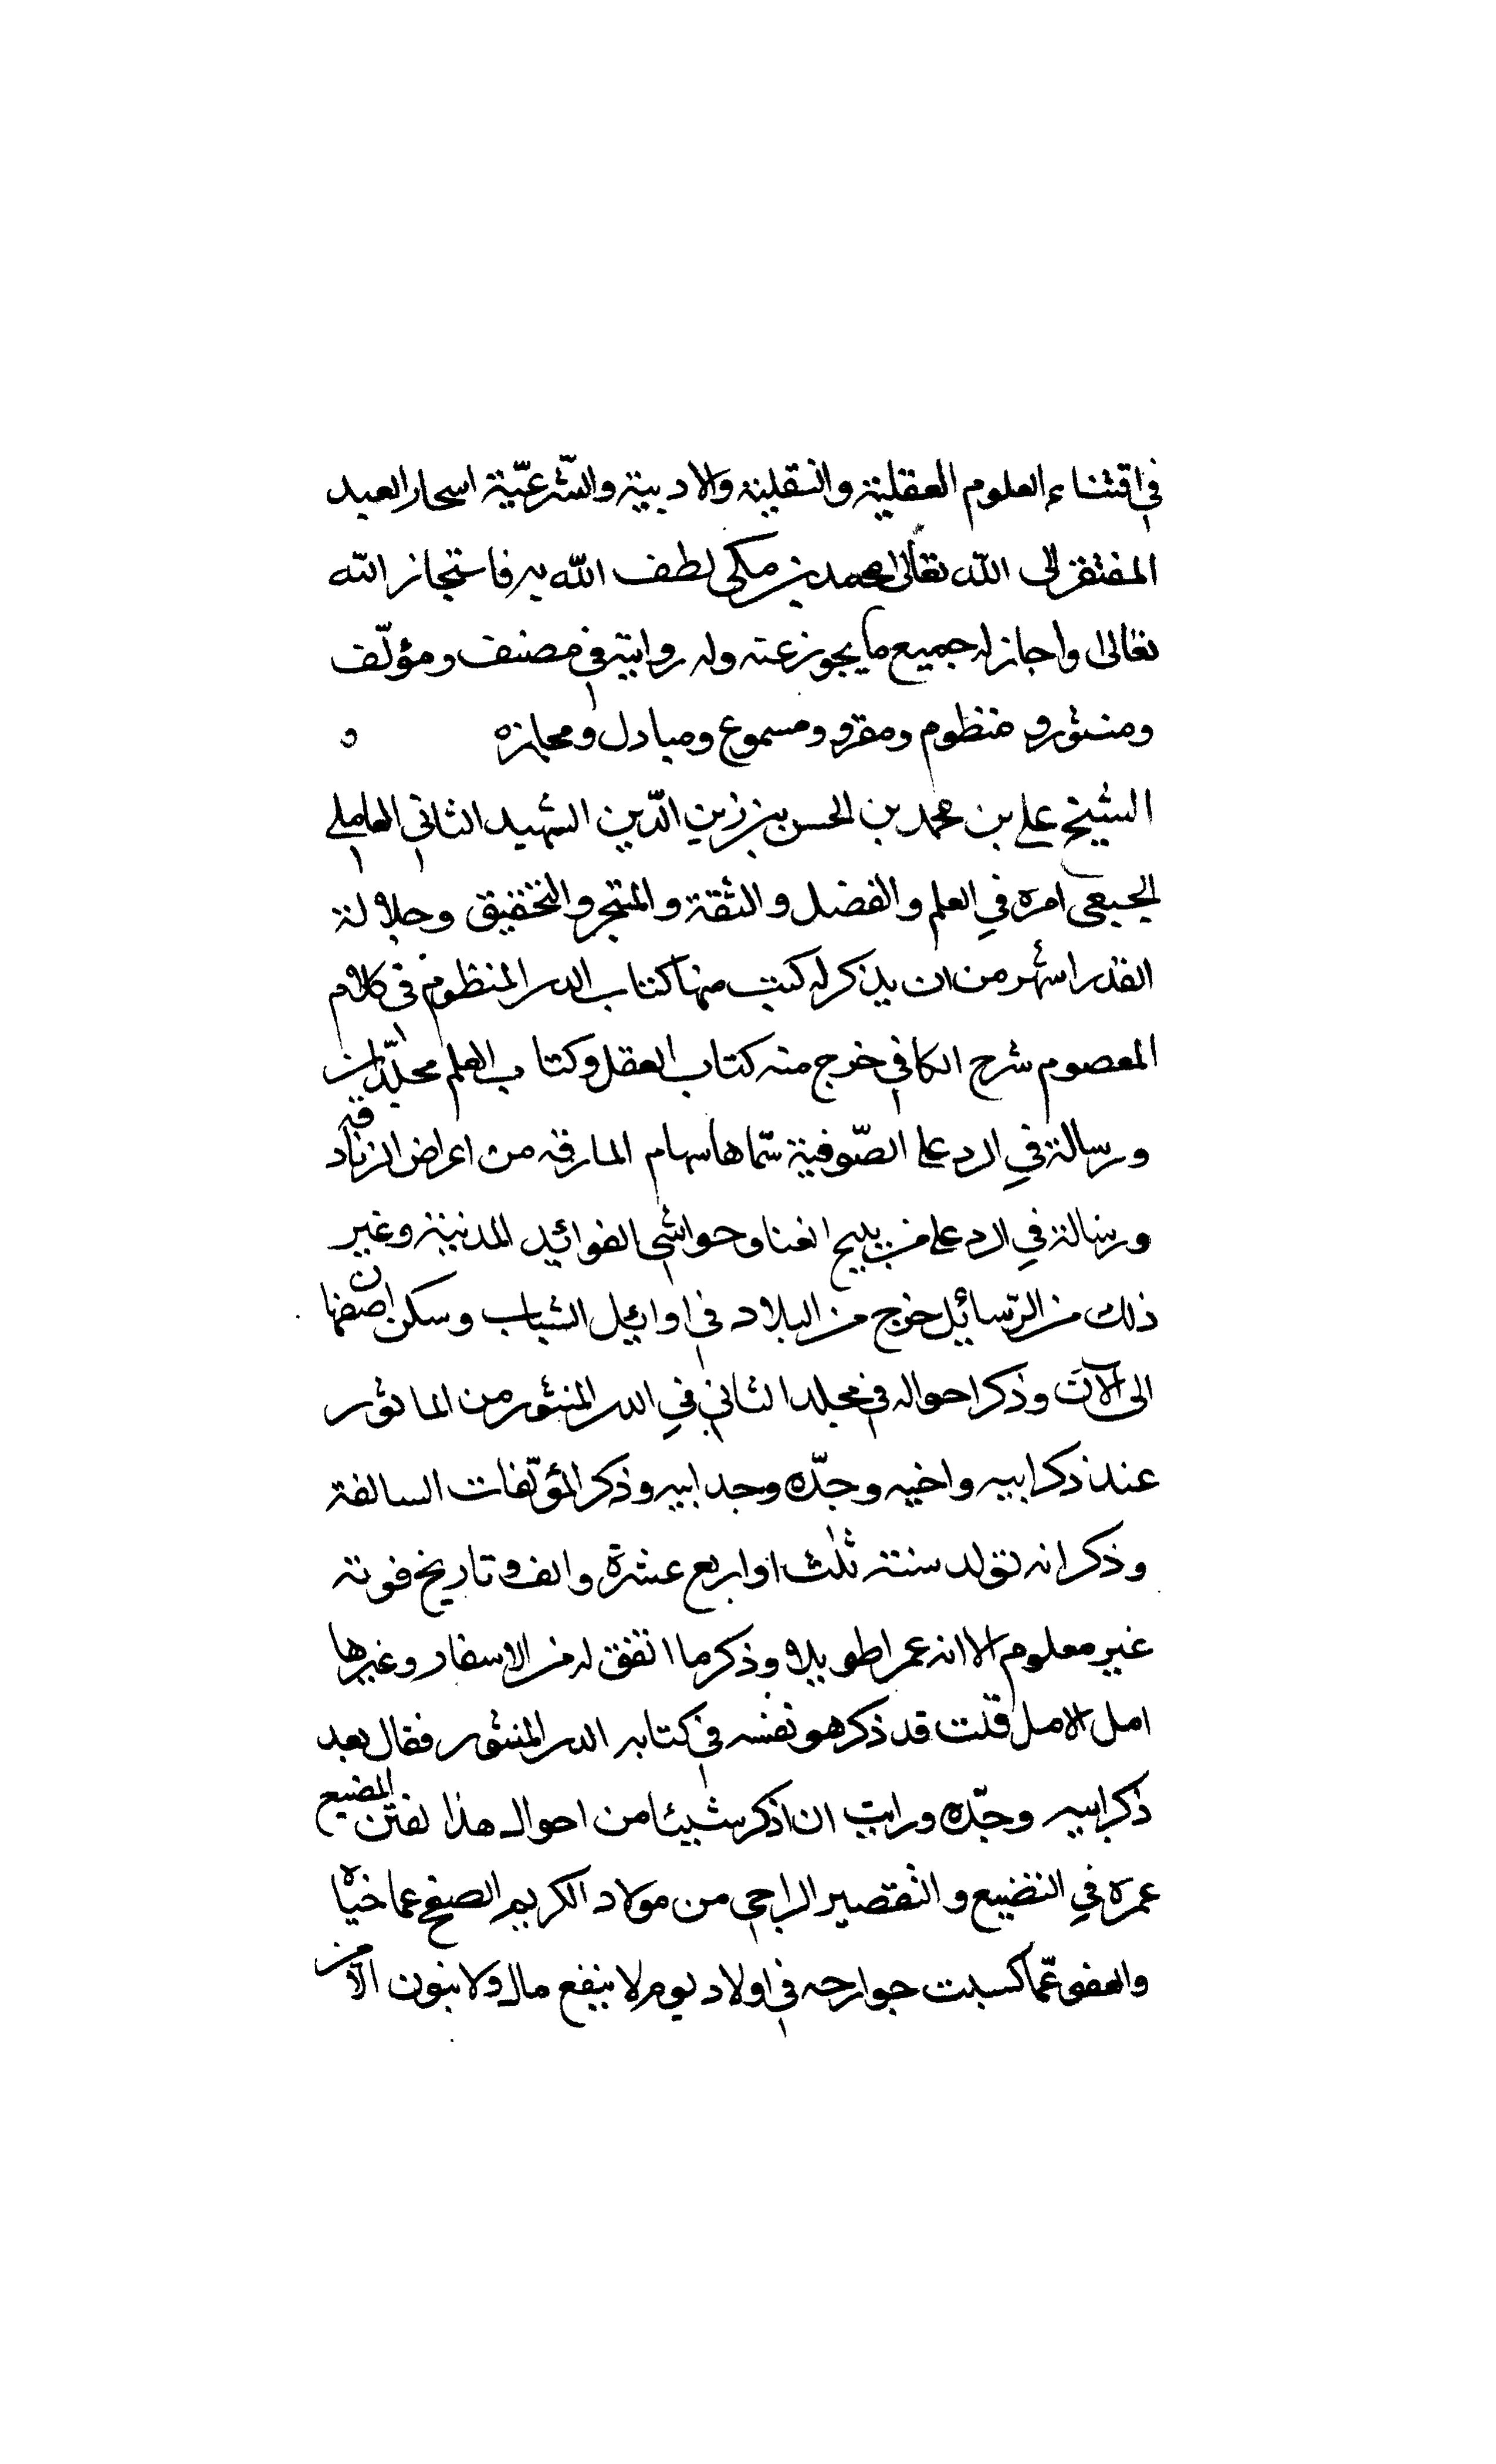 في اقتناء العلوم العقلية والنقلية والادبية والشّرعيّة اسحار العبد
المفتقر الى الله تعالى محمد بن مكي لطف الله به فاستجاز الله
تعالى واجاز له جميع ما يجوز عنه وله روايته في مصنف ومؤلّف
ومنثور و منظوم ومقرو ومسموع ومبادل ومجازه و
الشيخ علي بن محمد بن الحسن بن زين الدّين الشهيد الثاني العاملي
الجبعي امره في العلم والفضل والثقة والمتبحر والتحقيق وجلالة
القدر اشهر من ان يذكر له كتب منها كتاب الدر المنظوم في كلام
المعصوم شرح الكافي خرج منه كتاب العقل وكتاب العلم مجلّدان
ورسالة في الرد على الصّوفية سمّاها سهام المارقه من اعراض الزنادقه
ورسالة في الرد على من يبيح الغنا وحواشي الفوائد المدنية وغير
ذلك من الرّسائل خرج من البلاد في اوائل الشباب وسكن اصفهان
الى الآن وذكر احواله في مجلد الثاني في الدر المنثور من الماثور
عند ذكر ابيه واخيه وجدّه وجد ابيه وذكر المؤلّفات السالفة
وذكر انه تولد سنته ثلث او اربع عشرة والف وتاريخ فوته
غير معلوم الا انه عمر اطويلا وذكر ما اتفق له من الاسفار وغيرها
امل الامل قلت قد ذكر هو نفسه في كتابه الدر المنثور فقال بعد
ذكر ابيه وجدّه ورايت ان اذكر شيئا من احوال هذا لفتن المضيع
عمره في التضيع والتقصير الراجي من مولاد الكريم الصفح عما خياه
والعفو عمّا كسبت جوارحه في اولاد يوم لا ينفع مال ولا بنون الا من